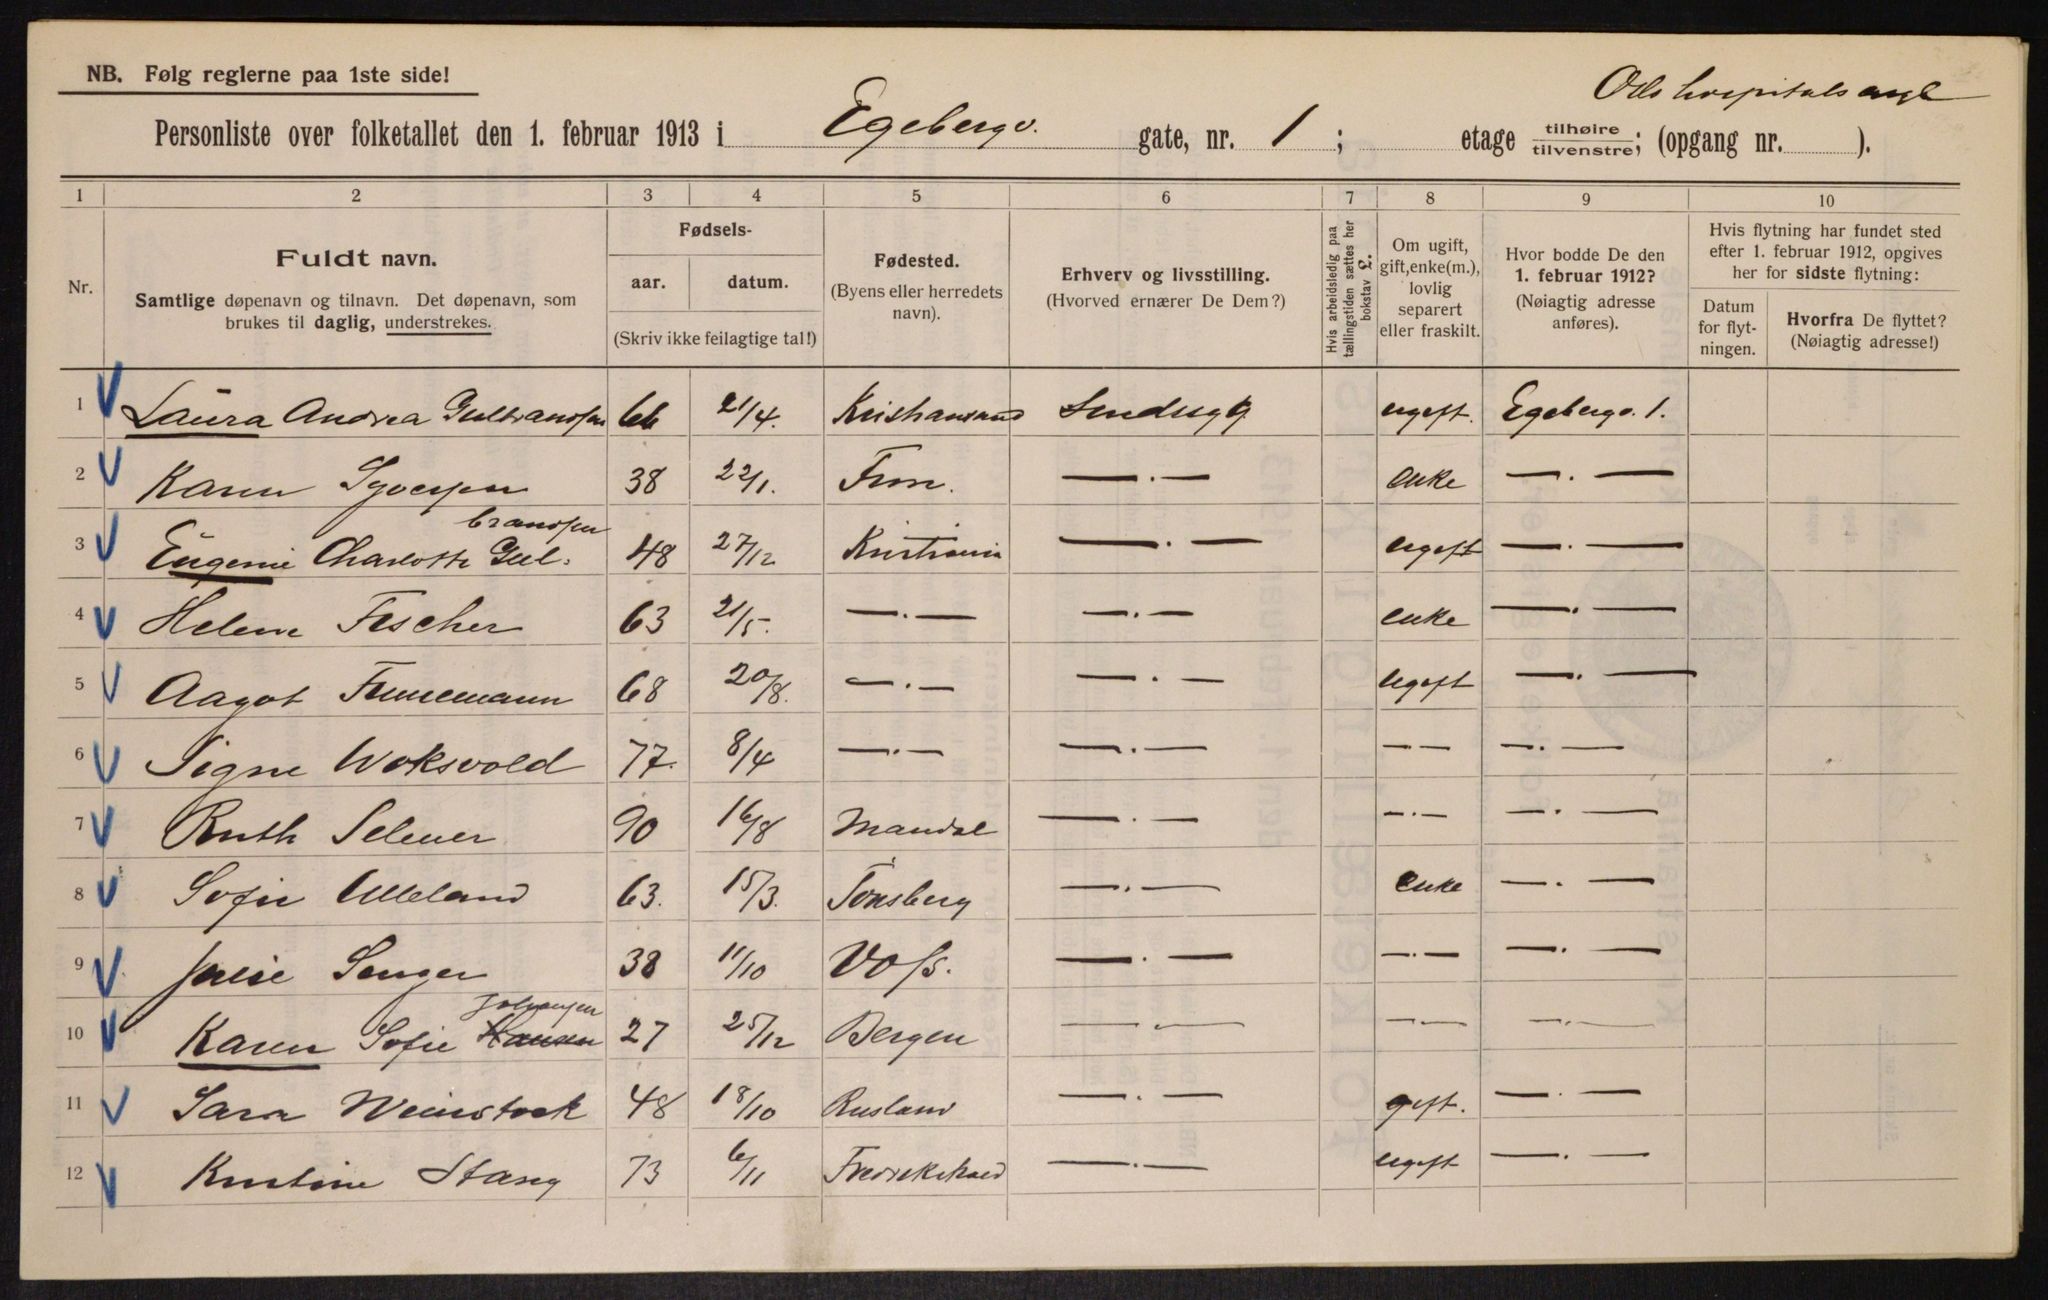 NB. Følg reglerne paa 1ste side!
Oslo hospitals
Personliste over folketallet den 1. februar 1913 i Egebergv. gate, nr. 1; etage tilhøire tilvenstre; (opgang nr. ).
1 2 3 4 5 6 7 8 9 10
Nr.
Fuldt navn.
Samtlige døpenavn og tilnavn. Det døpenavn, som
brukes til daglig, understrekes.
Fødsels-
aar. datum.
(Skriv ikke feilagtige tal!)
Fødested.
(Byens eller herredets
navn).
Erhverv og livsstilling.
(Hvorved ernærer De Dem?)
Hvis arbeidsledig paa
tællingstiden sættes her
bokstav L.
Om ugift,
gift, enke(m.),
lovlig
separert
eller fraskilt.
Hvor bodde De den
1. februar 1912?
(Nøiagtig adresse
anføres).
Hvis flytning har fundet sted
efter 1. februar 1912, opgives
her for sidste flytning:
Datum
for flyt-
ningen.
Hvorfra De flyttet?
(Nøiagtig adresse!)
1 Laura Andrea Gulbrandsen 66 21/4. Kristiansand Sindssyg ugift. Egebergv. 1.
2 Karen Syversen 38 22/1. Fron. —.— enke —.—
brandsen
3 Eugenie Charlotte Gul. 48 27/12 Kristiania —.— ugift —.—
4 Helene Fischer 63 21/5. —.— —.— enke —.—
5 Aagot 68 20/8. —.— —.— ugift —.—
6 Signe Woksvold 77. 8/4 —.— —.— —.— —.—
7 Ruth Selmer 90 16/8 Mandal —.— —.— —.—
8 Sofie Ulleland 63. 15/3. Tønsberg —.— enke —.—
9 Julie 38 11/10 Voss. —.— —.— —.—
Johansen
10 Karen Sofie Hansen 27 25/12 Bergen —.— —.— —.—
11 Sara Weinstock 48 18/10 Rusland —.— gift. —.—
12 Kristine Stang 73 6/11 Fredrikshald —.— ugift —.—